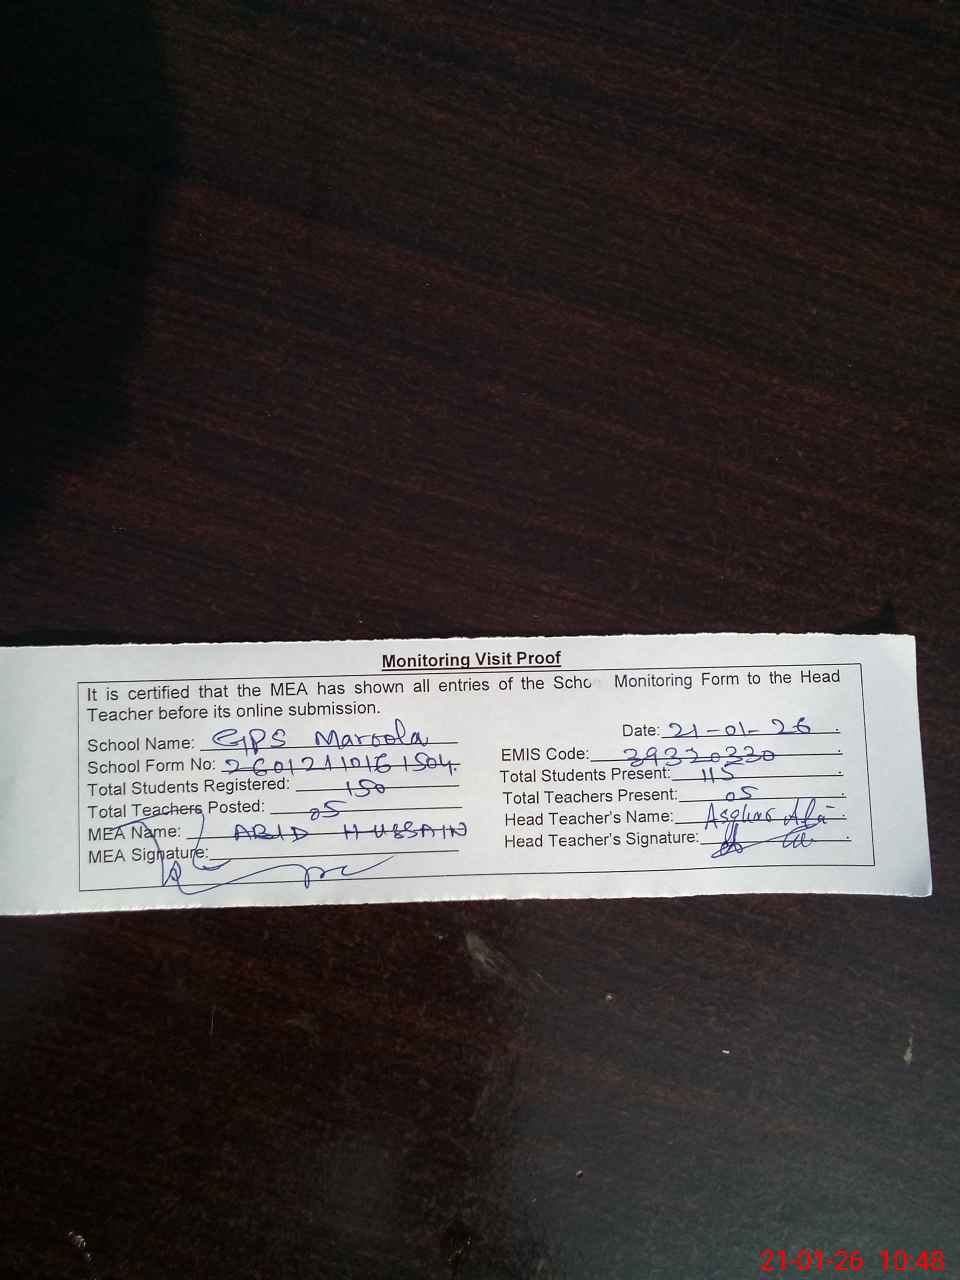 Monitoring Visit Proof
It is certified that the MEA has shown all entries of the Scho Monitoring Form to the Head
Teacher before its online submission.
Date: 21-01-26
School Name: GPS Maroola
EMIS Code: 39320330
School Form No: 26012110161504
Total Students Present: 115
Total Students Registered: 150
Total Teachers Present: 05
Total Teachers Posted: 05
Head Teacher's Name: Asghar Ali
MEA Name: ABID HUSSAIN
Head Teacher's Signature:
MEA Signature:
21-01-26 10:48